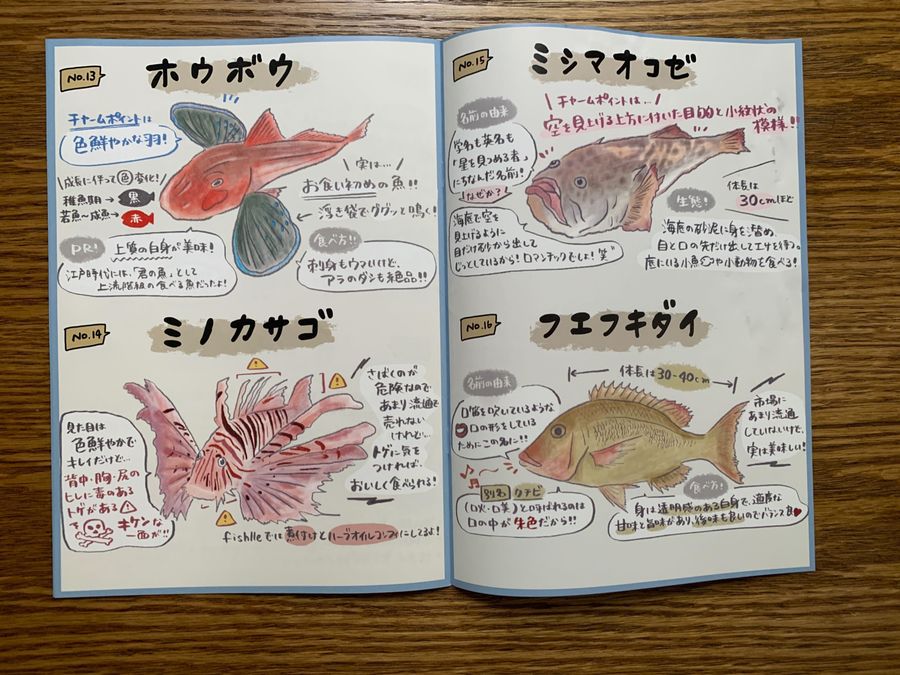 No.13
ホウボウ
チャームポイントは
色鮮やかな羽!
成長に伴って色変化!
稚魚期→黒
若魚〜成魚→赤
実は…
お食い初めの魚!!
浮き袋でググッと鳴く!
PR!
上質の白身が美味!
江戸時代には、「君の魚」として
上流階級の食べる魚だったよ!
食べ方!!
刺身もウマいけど、
アラのダシも絶品!!
No.14
ミノカサゴ
見た目は
色鮮やかで
キレイだけど…
背中・胸・尻の
ヒレに毒のある
トゲがある
キケンな
一面が!!
さばくのが
危険なので
あまり流通で
売れない
けれど…
トゲに気を
つければ
おいしく食べられる!
fishlleでは煮付けとハーブオイルコンフィにしてるよ!
No.15
ミシマオコゼ
名前の由来
学名も英名も
「星を見つめる者」
にちなんだ名前!
なぜか?
海底で空を
見上げるように
目だけ砂から出して
じっとしているから!ロマンチックでしょ!笑
チャームポイントは…
空を見上げる上方に付いた目的と小紋状の
模様!!
体長は
30cmほど
生態!
海底の砂泥に身を潜め、
目と口の先だけ出してエサを待つ。
底にいる小魚や小動物で食べる!
No.16
フエフキダイ
名前の由来
口笛を吹いているような
口の形をしている
ためにこの名に!!
体長は30-40cm
市場に
あまり流通
していないけど、
実は美味しい!
別名 クチビ
(口火・口美)と呼ばれるのは
口の中が朱色だから!!
食べ方!
身は透明感のある白身で、適度な
甘味と旨味があり、後味も良いのでバランス良